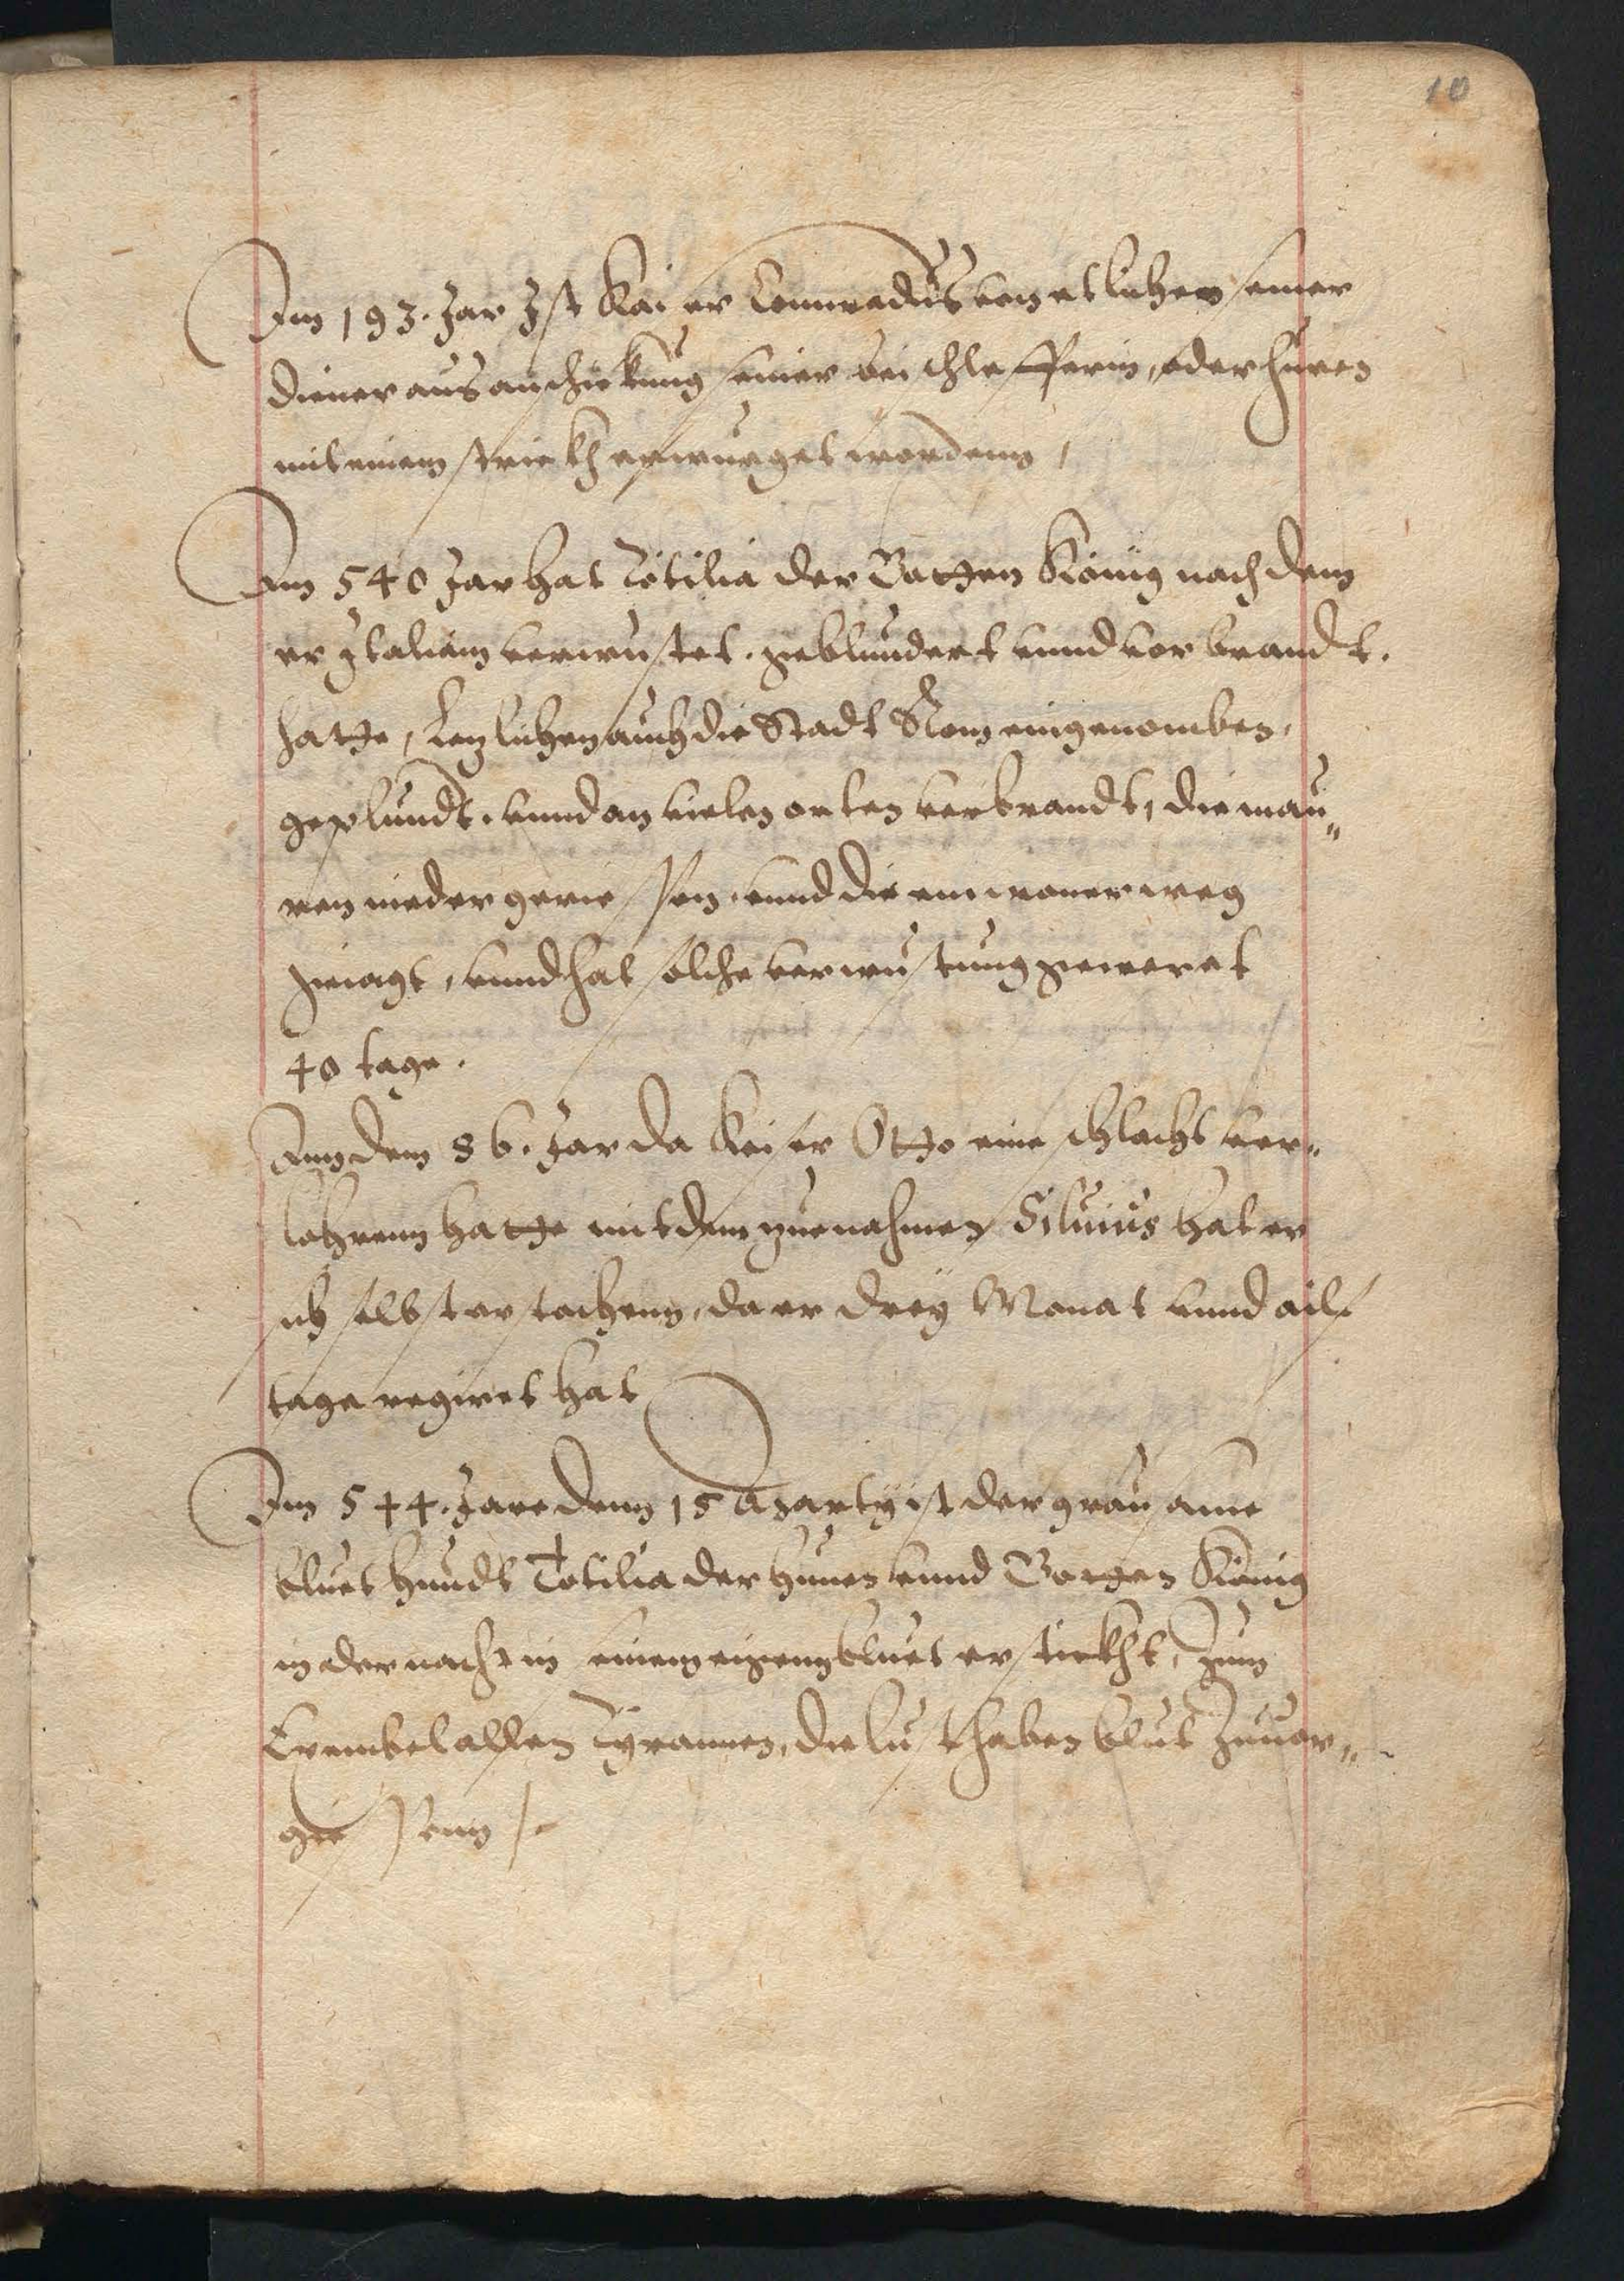 10
Im 193. Jar Jst Kaiser Connradus von etlichen seiner
diener aus anschickung seiner beischlefferin, oder huren
mit einem strickh erwurget wordenn,
Im 540 Jar hat Totilia der Gotten König nach dem
er Jtaliam verwustet. geblundert vnnd vorbrandt.
hatte, Lezlichen auch die Stadt Rom eingenomben,
geplundt. vnnd an vielen orten verbrandt, die mau„
ren nieder geriessen. vnnd die einwoner weg
geiagt, vnnd hat solche verwustung geweret
40 tage.
Ann dem 86. Jar da Keiser Otto eine schlacht ver„
lohrenn hatte mit dem zuenahmen Siluius hat er
sich selbst erstochenn, da er dreÿ Monat vnnd ailf
tage regiret hat
Im 544. Jare denn 15 Martÿ ist der grausame
bluet hundt Totilia der hunen vnnd Gotten König
in der nacht in seinem eigenn bluet erstickht, Zum
Exembel allen Tyrannen, die lust haben blut Zuuor„
giessenn /.